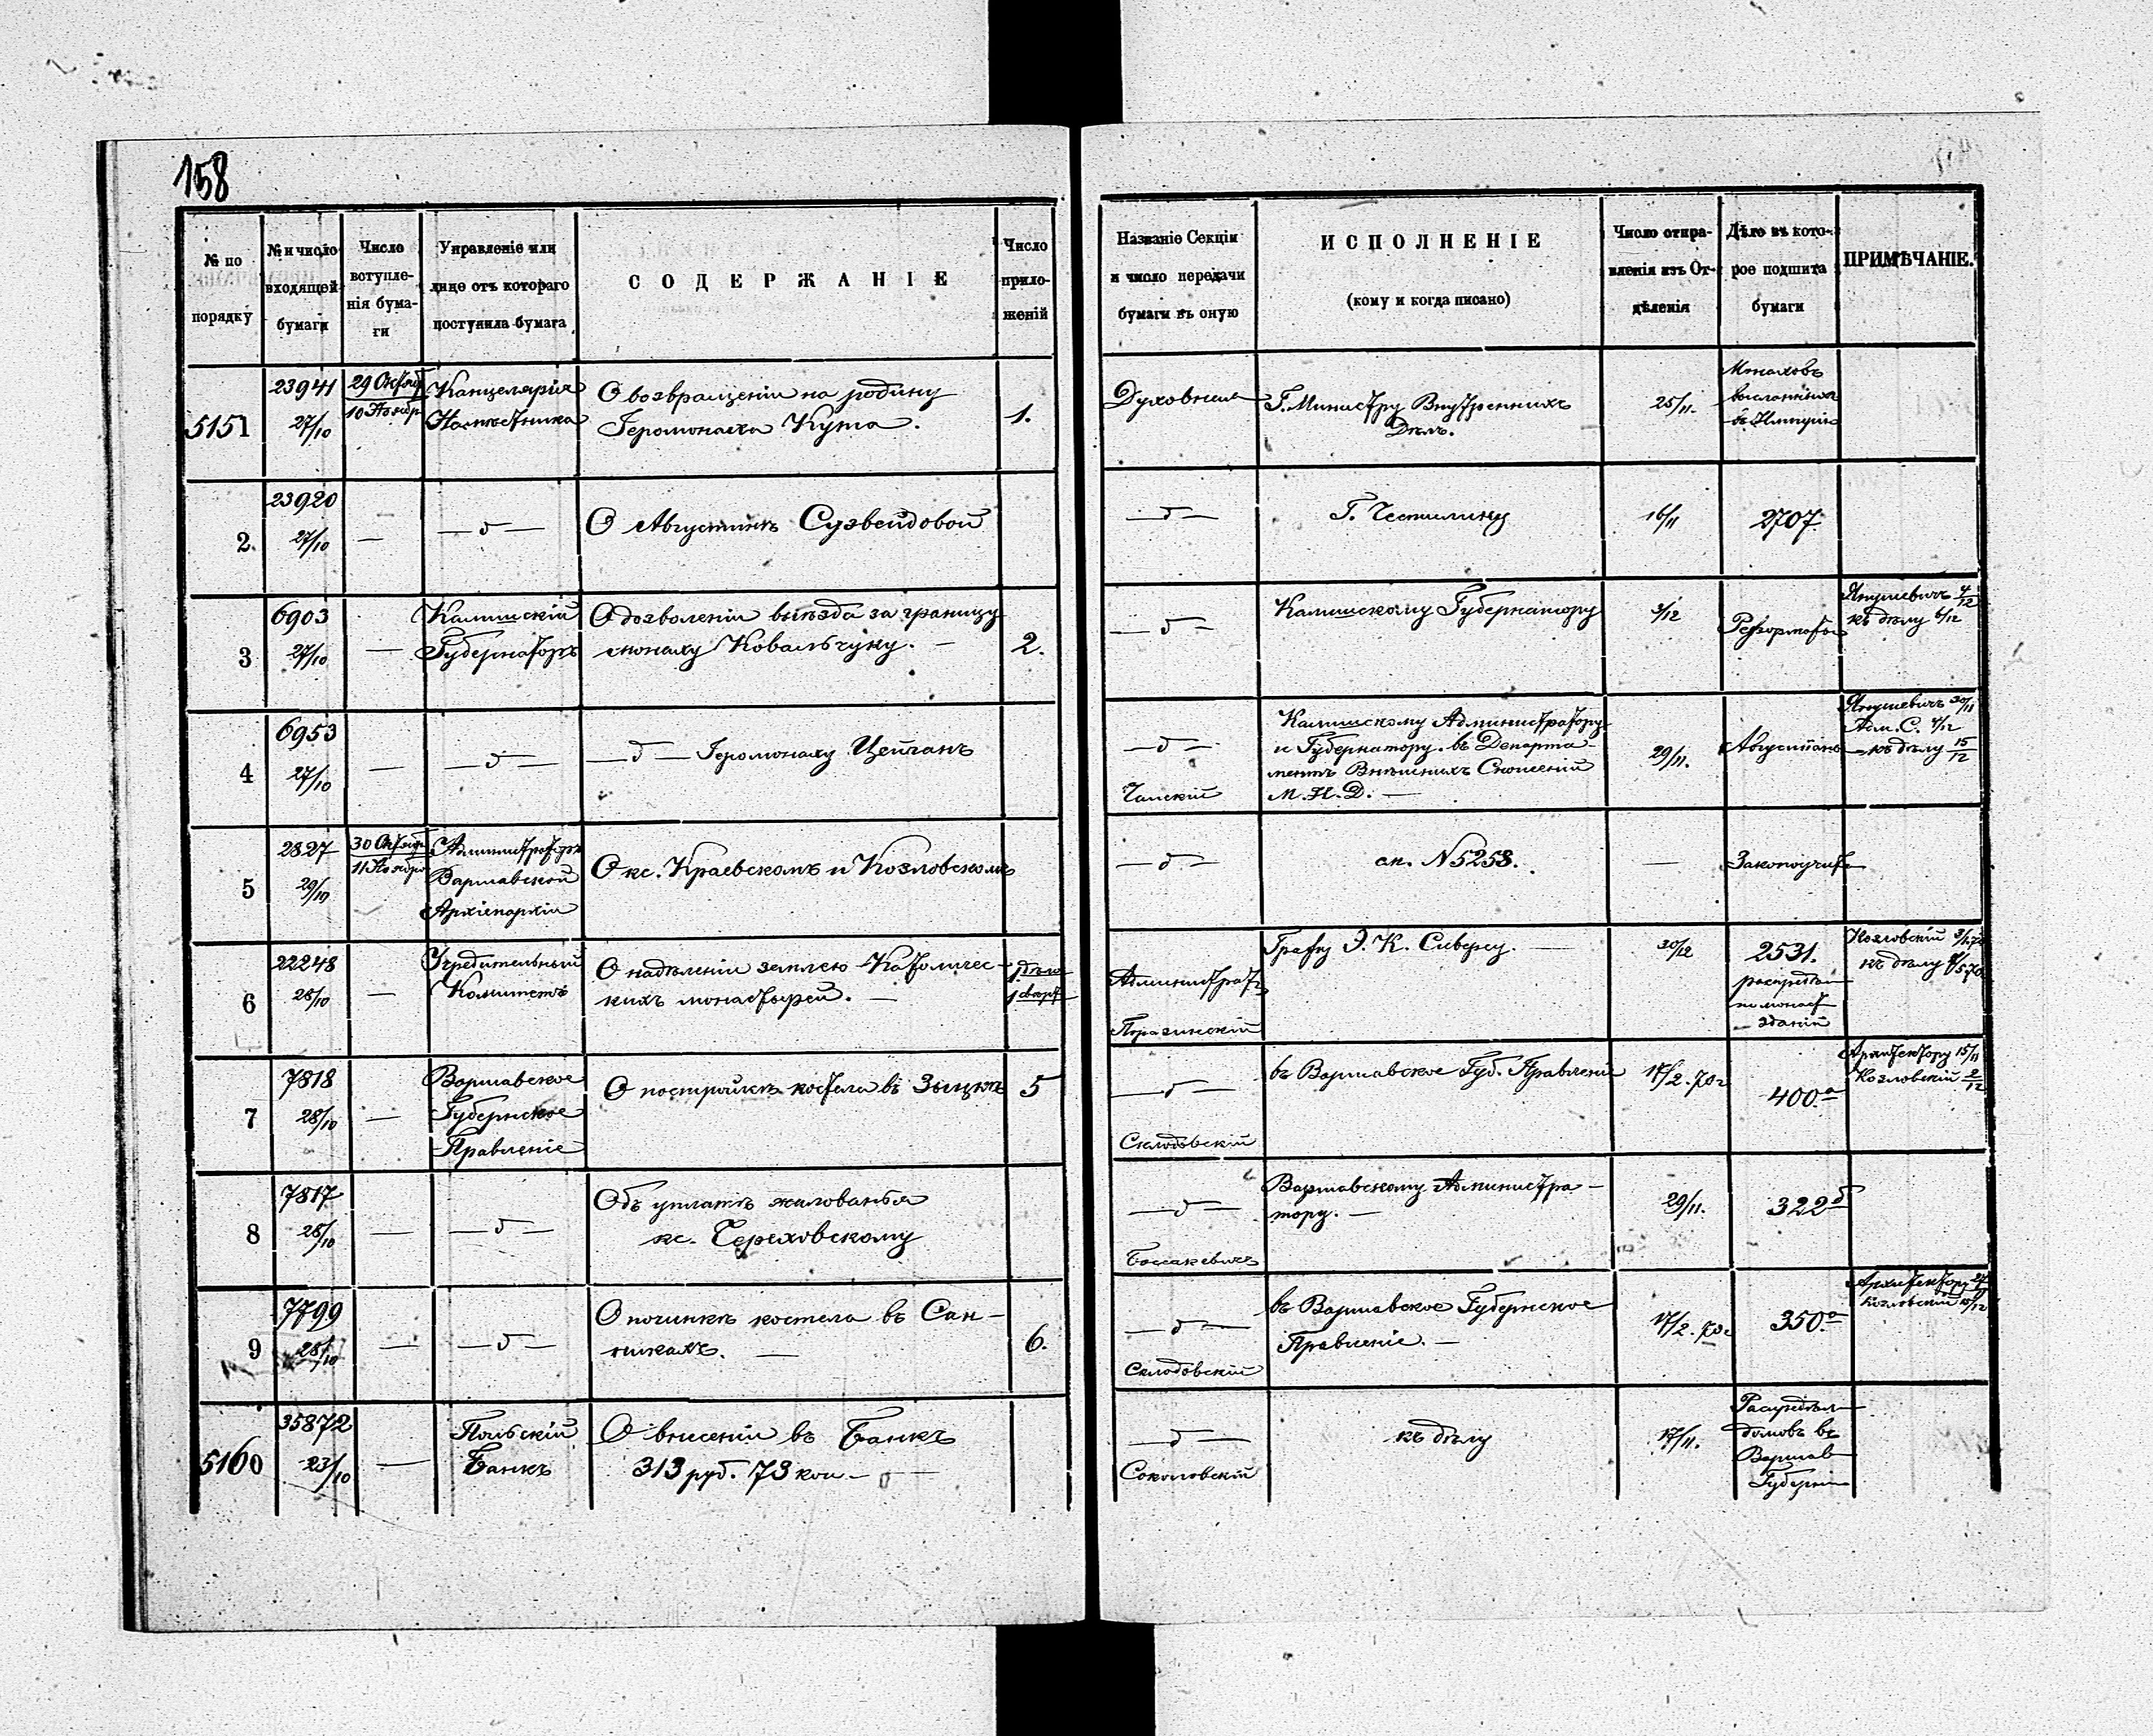 158
№ по порядку
№ и число входящей бумаги
Число вступле-
нія бума-
ги
Управленіе или
лице отъ котораго
поступила бумага
СОДЕРЖАНІЕ
Число
прило-
женій
Названіе Секціи
и число передачи
бумаги въ оную
ИСПОЛНЕНІЕ
(кому и когда писано)
Число отпра-
вленія изъ От-
дѣленія
Дѣло въ кото-
рое подшита
бумаги
ПРИМѢЧАНІЕ.
5151
23941
27/10
29 Октяб
10 Нояб
Канцелярія
Намѣстника
О возвращеніи на родину
Іеромонаха Кута.
1.
Духовная
Г. Министру Внутреннихъ
Дѣлъ.
25/11.
Монаховъ
высланныхъ
въ Имперію
2.
23920
27/10
—
— д —
О Августинѣ
— д —
Г.
16/11
2707
3
6903
27/10
—
Калишскій
Губернаторъ
О дозволеніи выѣзда за границу
монаху Ковальчуку. —
2.
— д —
Калишскому Губернатору
3/12
Реформаты
Янушевичъ 4/12
къ дѣлу 6/12
4
6953
27/10
—
— д —
— д — Іеромонаху
— д —
Калишскому Администратору
и Губернатору. въ Департа-
ментъ Внѣшнихъ Сношеній
М. И. Д. —
29/11.
Августіане
Янушевичъ 30/11
Адм. С. 4/12
къ дѣлу 15/12
5
2827
29/10
30 Октяб
11 Нояб
Администраторъ
Варшавской
Архіепархіи
О кс. Краевскомъ и Козловскомъ
— д —
см. N 5258.
—
Законоучит
6
22248
28/10
—
Учредительный
Комитетъ
О надѣленіи землею Католичес-
кихъ монастырей. —
1 дѣло
Администрат
Графу Э. К. Сиверсу. —
30/12
2531.
монаст
зданій
Козловскій
къ дѣлу
7
7818
28/10
—
Варшавское
Губернское
Правленіе
О постройкѣ костела въ Зыцкѣ
5
— д —
Склодовскій
въ Варшавское Губ. Правленіе
17/2. 70 г
400.а
Архитектору 15/11
Козловскій 2/12
8
7817
28/10
—
— д —
Объ уплатѣ жалованья
кс. Тереховскому
— д —
Варшавскому Администра-
тору. —
29/11.
322 б
9
7799
28/10
—
— д —
О починкѣ костела въ Сан-
никахъ. —
6.
— д —
Склодовскій
въ Варшавское Губернское
Правленіе. —
17/2. 70 г
350.а
Архитектору
Козловскій
5160
35872
23/10
—
Польскій
Банкъ
О внесеніи въ Банкъ
313 руб. 73 коп —
— д —
Соколовскій
къ дѣлу
17/11.
Распредѣл
домовъ въ
Варшав
Губерні